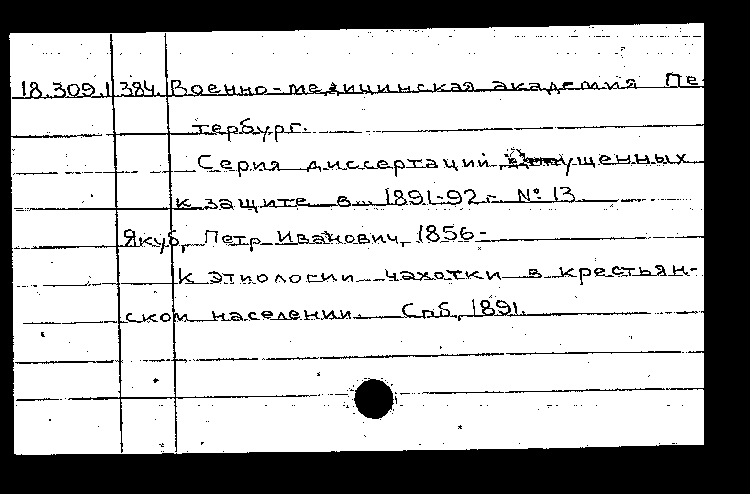 18.309.1 384. Военно-медицинская академия Пе-
тербург.
Серия диссертаций, допущенных
к защите в... 1891-92 г. № 13.
Якуб, Петр Иванович, 1856-
К этиологии чахотки в крестьян-
ском населении. Спб, 1891.